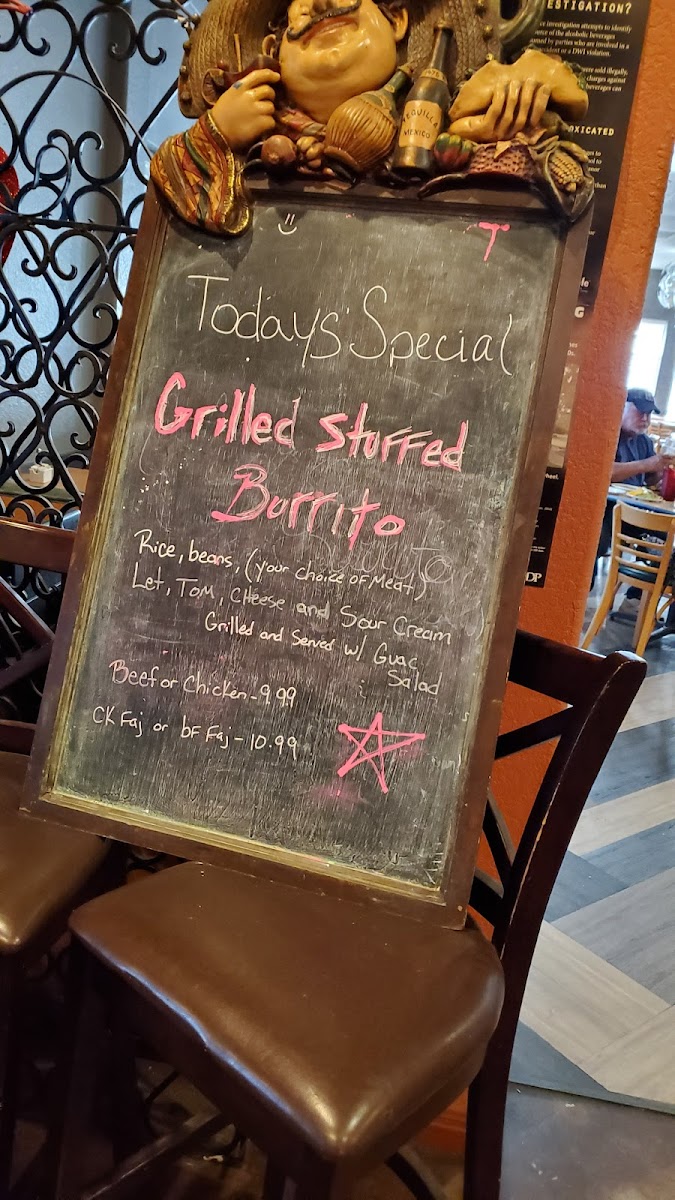 ESTIGATION?
investigation attempts to identify
of the alcoholic beverages
by parties who are involved in a
or a DWI violation.
were sold illegally,
charges against
beverages can
TEQUILLA
MEXICO
Todays Special
Grilled Stuffed
Burrito
Rice, beans, (your choice of Meat)
Let, Tom, Cheese and Sour Cream
Grilled and Served w/ Guac
Salad
Beef or Chicken - 9.99
CK Faj or bF Faj - 10.99